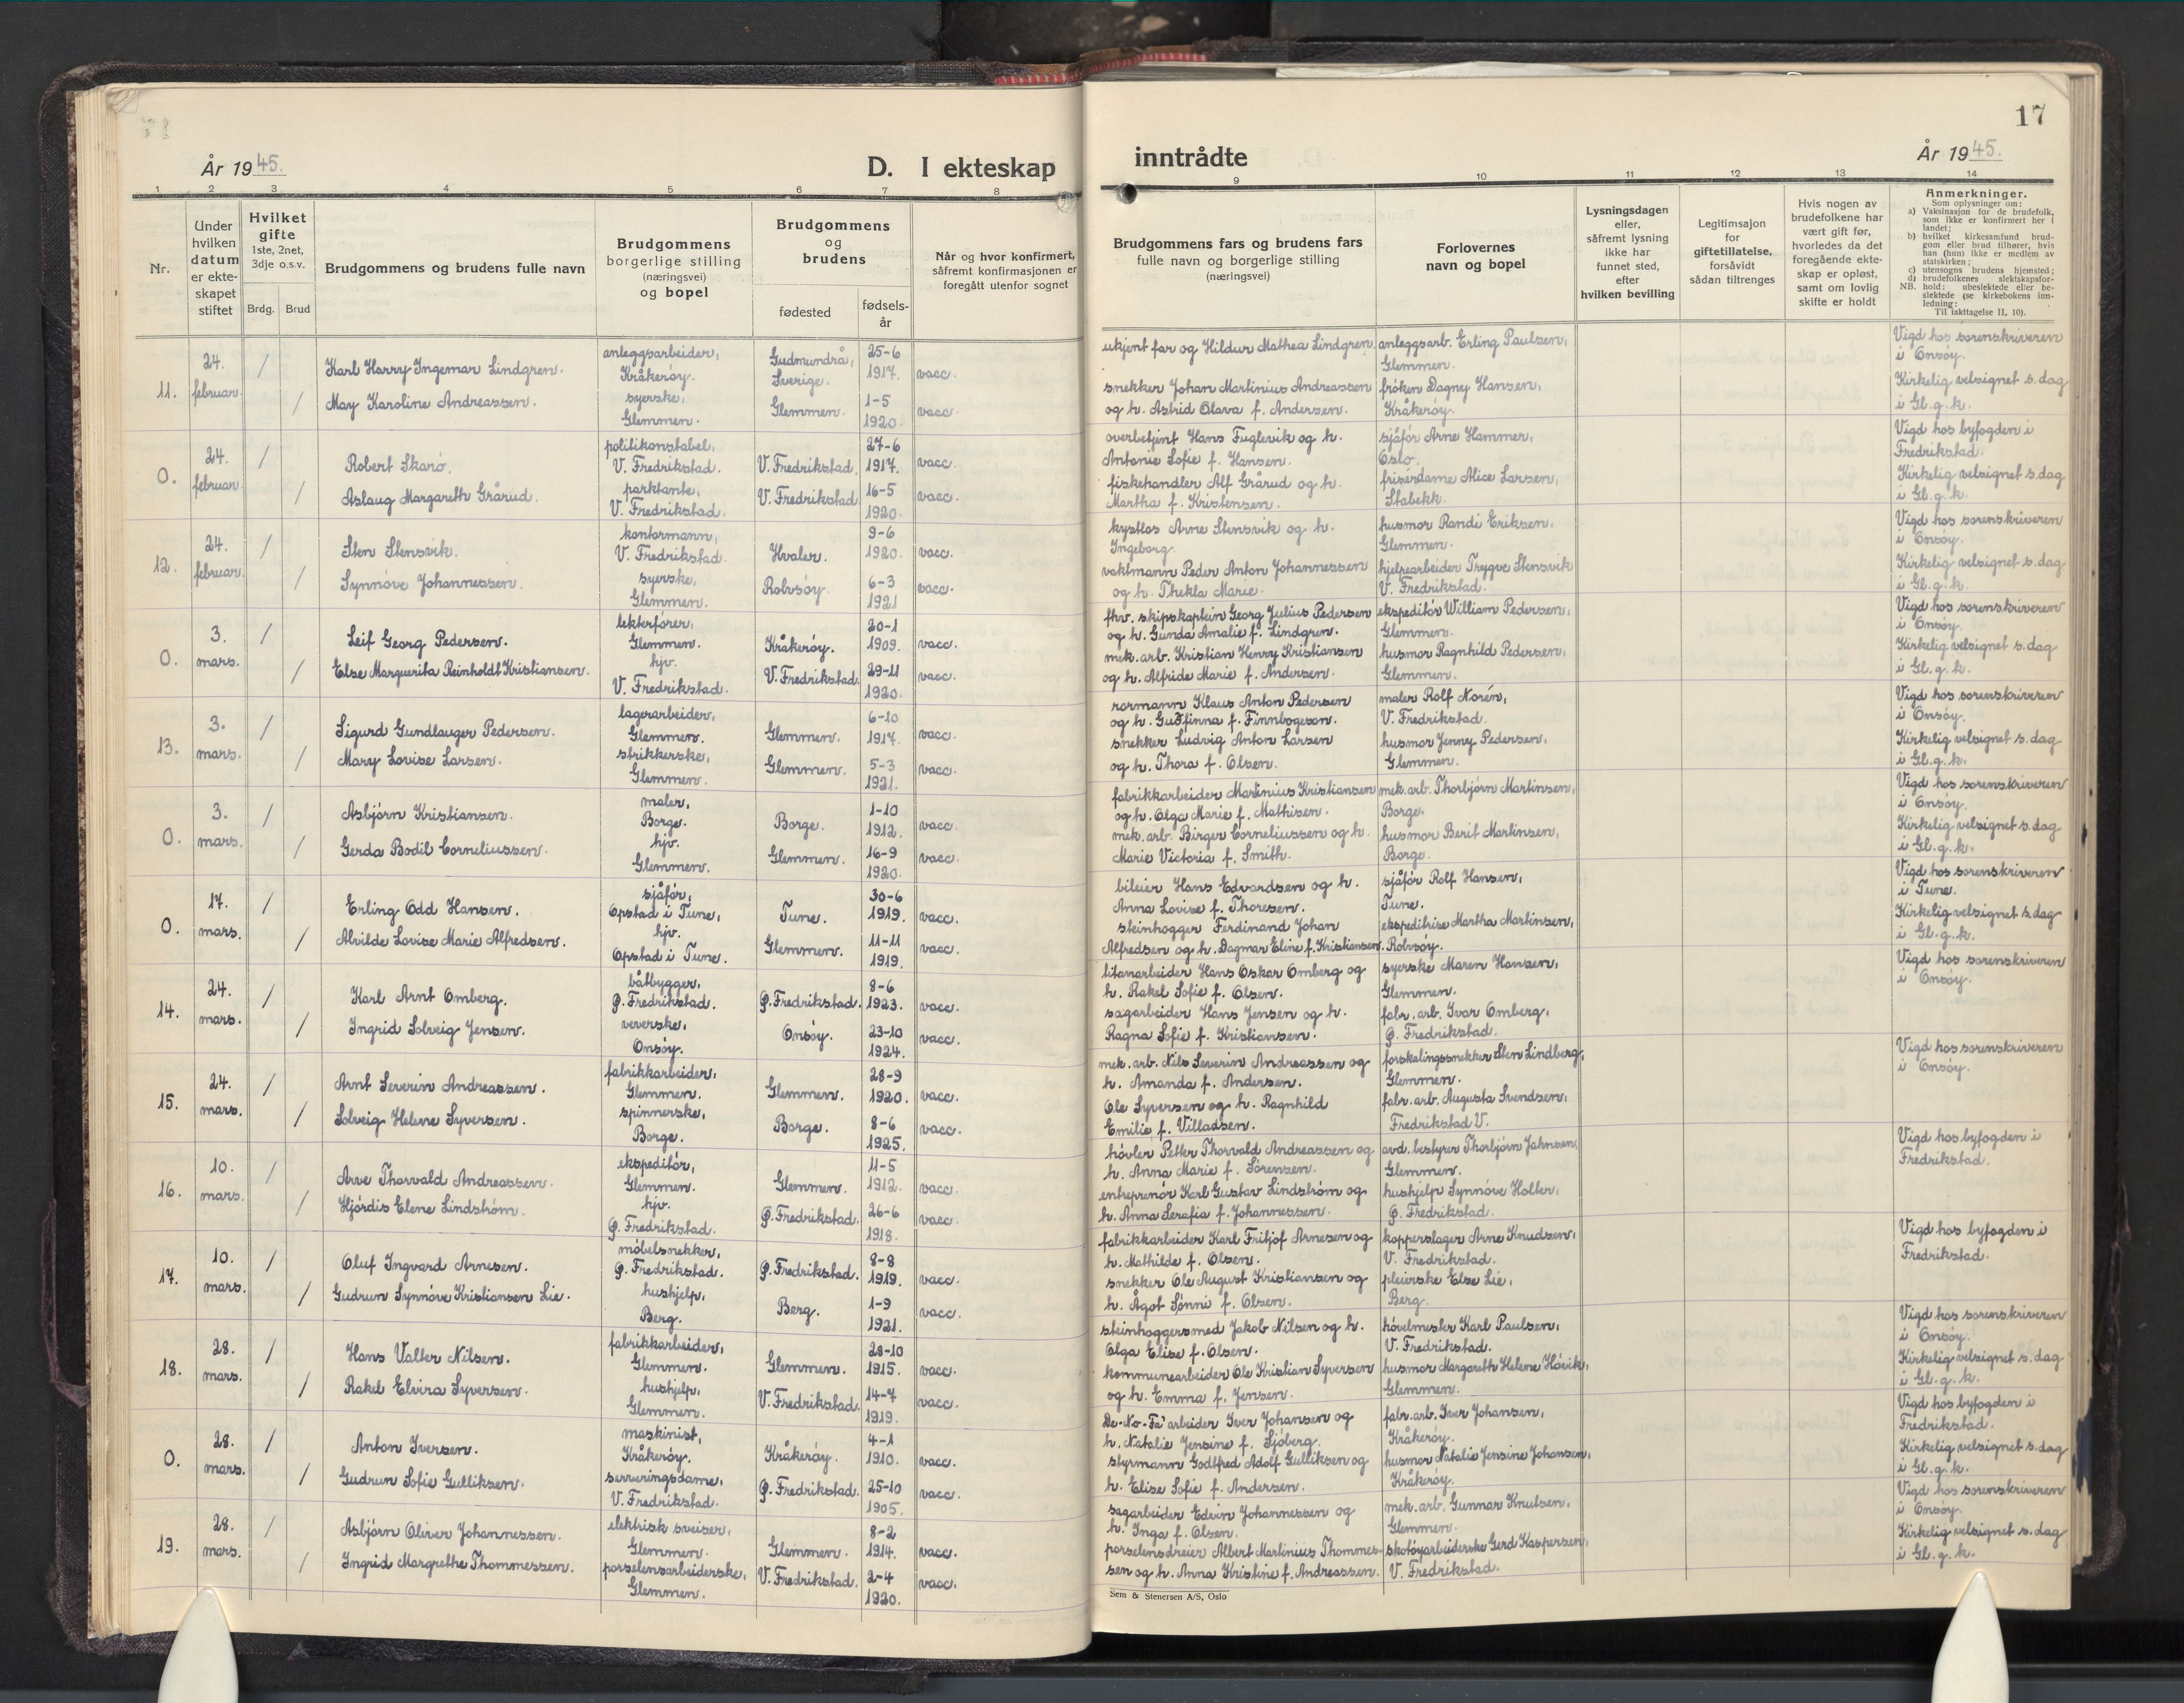 17
År 1945.
D. I ekteskap
inntrådte
År 1945.
1 2 3 4 5 6 7 8 9 10 11 12 13 14
Nr.
Under hvilken datum er ekteskapet stiftet
Hvilket gifte
1ste, 2net, 3dje o.s.v.
Brdg. Brud
Brudgommens og brudens fulle navn
Brudgommens borgerlige stilling (næringsvei) og bopel
Brudgommens og brudens
fødested
fødselsår
Når og hvor konfirmert, såfremt konfirmasjonen er foregått utenfor sognet
Brudgommens fars og brudens fars fulle navn og borgerlige stilling (næringsvei)
Forlovernes navn og bopel
Lysningsdagen eller, såfremt lysning ikke har funnet sted, efter hvilken bevilling
Legitimsajon for giftetillatelse, forsåvidt sådan tiltrenges
Hvis nogen av brudefolkene har vært gift før, hvorledes da det foregående ekteskap er opløst, samt om lovlig skifte er holdt
Anmerkninger.
Som oplysninger om:
a) Vaksinasjon for de brudefolk, som ikke er konfirmert her i landet;
b) hvilket kirkesamfund brudgom eller brud tilhører, hvis han (hun) ikke er medlem av statskirken;
c) utensogns brudens hjemsted;
d) brudefolkenes slektskapsforhold: ubeslektede eller beslektede (se kirkebokens innledning:
NB.
Til iakttagelse II, 10).
11. 24. februar. / Karl Harry Ingemar Lindgren. anleggsarbeider, Kråkerøy. Gudmundrå, Sverige. 25-6 1917. vacc. ukjent far og Hildur Mathea Lindgren. anleggsarb. Erling Paulsen, Glemmen. Vigd hos sorenskriveren i Onsøy.
/ May Karoline Andreassen. syerske, Glemmen. Glemmen. 1-5 1920. vacc. snekker Johan Martinius Andreassen og h. Astrid Olava f. Andersen. frøken Dagny Hansen, Kråkerøy. Kirkelig velsignet s. dag i Gl. g. k.
0. 24. februar. / Robert Skarø. politikonstabel, V. Fredrikstad. V. Fredrikstad. 27-6 1917. vacc. overbetjent Hans Fuglevik og h. Antonie Sofie f. Hansen. sjåfør Arne Hammer, Oslo. Vigd hos byfogden i Fredrikstad.
/ Aslaug Margareth Grårud. parktante, V. Fredrikstad. V. Fredrikstad. 16-5 1920. vacc. fiskehandler Alf Grårud og h. Martha f. Kristensen. frisørdame Alice Larsen, Stabekk. Kirkelig velsignet s. dag i Gl. g. k.
12. 24. februar. / Sten Stensvik. kontormann, V. Fredrikstad. Hvaler. 9-6 1920. vacc. kystlos Arne Stensvik og h. Ingeborg. husmor Randi Eriksen, Glemmen. Vigd hos sorenskriveren i Onsøy.
/ Synnøve Johannessen. syerske, Glemmen. Rolvsøy. 6-3 1921 vacc. vaktmann Peder Anton Johannessen og h. Thekla Marie. hjelpearbeider Trygve Stensvik V. Fredrikstad. Kirkelig velsignet s. dag i Gl. g. k.
0. 3. mars. / Leif Georg Pedersen. lekterfører, Glemmen. Kråkerøy. 20-1 1909. vacc. fhv. skipskaptein Georg Julius Pedersen og h. Gunda Amalie f. Lindgren. ekspeditør William Pedersen, Glemmen. Vigd hos sorenskriveren i Onsøy.
/ Else Marguerita Reinholdt Kristiansen. hjv. V. Fredrikstad. V. Fredrikstad. 29-11 1920. vacc. mek. arb. Kristian Henry Kristiansen og h. Alfride Marie f. Andersen. husmor Ragnhild Pedersen, Glemmen. Kirkelig velsignet s. dag i Gl. g. k.
13. 3. mars. / Sigurd Gundlauger Pedersen. lagerarbeider, Glemmen. Glemmen. 6-10 1917. vacc. rormann Klaus Anton Pedersen og h. Guðfinna f. Finnbogeson. maler Rolf Norén, V. Fredrikstad. Vigd hos sorenskriveren i Onsøy.
/ Mary Lovise Larsen. strikkerske, Glemmen. Glemmen. 5-3 1921. vacc. snekker Ludvig Anton Larsen og h. Thora f. Olsen. husmor Jenny Pedersen, Glemmen. Kirkelig velsignet s. dag i Gl. g. k.
0. 3. mars. / Asbjørn Kristiansen. maler, Borge. Borge. 1-10 1912. vacc. fabrikkarbeider Martinius Kristiansen og h. Olga Marie f. Mathisen. mek. arb. Thorbjørn Martinsen, Borge. Vigd hos sorenskriveren i Onsøy.
/ Gerda Bodil Corneliussen. hjv. Glemmen. Glemmen. 16-9 1920. vacc. mek. arb. Birger Corneliussen og h. Marie Victoria f. Smith. husmor Berit Martinsen, Borge. Kirkelig velsignet s. dag i Gl. g. k.
0. 17. mars. / Erling Odd Hansen. sjåfør, Opstad i Tune, Tune. 30-6 1919. vacc. bileier Hans Edvardsen og h. Anna Lovise f. Thoresen. sjåfør Rolf Hansen, Tune. Vigd hos sorenskriveren i Tune.
/ Alvilde Lovise Marie Alfredsen. hjv. Opstad i Tune. Glemmen. 11-11 1919. vacc. steinhogger Ferdinand Johan Alfredsen og h. Dagmar Eline f. Kristiansen. ekspeditrise Martha Martinsen, Rolvsøy. Kirkelig velsignet s. dag i Gl. g. k.
14. 24. mars. / Karl Arnt Omberg. båtbygger, Ø. Fredrikstad. Ø. Fredrikstad. 8-6 1923. vacc. titanarbeider Hans Oskar Omberg og h. Rakel Sofie f. Olsen. syerske Maren Hansen, Glemmen. Vigd hos sorenskriveren i Onsøy.
/ Ingrid Solveig Jensen. veverske, Onsøy. Onsøy. 23-10 1924. vacc. sagarbeider Hans Jensen og h. Ragna Sofie f. Kristiansen. fabr. arb. Ivar Omberg, Ø. Fredrikstad.
15. 24. mars. / Arnt Severin Andreassen. fabrikkarbeider, Glemmen. Glemmen. 28-9 1920. vacc. mek. arb. Nils Severin Andreassen og h. Amanda f. Andersen. forskalingssnekker Sten Lindberg, Glemmen. Vigd hos sorenskriveren i Onsøy.
/ Solveig Helene Syversen. spinnerske, Borge. Borge. 8-6 1925. vacc. Ole Syversen og h. Ragnhild Emilie f. Villadsen. fabr. arb. Augusta Svendsen, Fredrikstad V.
16. 10. mars. / Arve Thorvald Andreassen. ekspeditør, Glemmen. Glemmen. 11-5 1912. vacc. høvler Petter Thorvald Andreassen og h. Anna Marie f. Sørensen. avd. bestyrer Thorbjørn Jahnsen, Glemmen. Vigd hos byfogden i Fredrikstad.
/ Hjørdis Elene Lindstrøm. hjv. Ø. Fredrikstad. Ø. Fredrikstad. 26-6 1918. vacc. entreprenør Karl Gustav Lindstrøm og h. Anna Serafia f. Johannessen. hushjelp Synnøve Holter, Ø. Fredrikstad.
17. 10. mars. / Oluf Ingvard Arnesen. møbelsnekker, Ø. Fredrikstad. Ø. Fredrikstad. 8-8 1919. vacc. fabrikkarbeider Karl Fritjof Arnesen og h. Mathilde f. Olsen. kopperslager Arne Knudsen, V. Fredrikstad. Vigd hos byfogden i Fredrikstad.
/ Gudrun Synnøve Kristiansen Lie. hushjelp, Berg. Berg. 1-9 1921. vacc. snekker Ole August Kristiansen og h. Ågot Sønni f. Olsen. pleierske Else Lie, Berg.
18. 28. mars. / Hans Valter Nilsen. fabrikkarbeider, Glemmen. Glemmen. 28-10 1915. vacc. steinhoggersmed Jakob Nilsen og h. Olga Elise f. Olsen. høvelmester Karl Paulsen, V. Fredrikstad. Vigd hos sorenskriveren i Onsøy.
/ Rakel Elvira Syversen. hushjelp, Glemmen. V. Fredrikstad. 14-7 1919. vacc. kommunearbeider Ole Kristian Syversen og h. Emma f. Jensen. husmor Margareth Helene Høvik, Glemmen. Kirkelig velsignet s. dag i Gl. g. k.
0. 28. mars. / Anton Iversen. maskinist, Kråkerøy. Kråkerøy. 4-1 1910. vacc. De-No-Fa' arbeider Iver Johansen og h. Natalie Jensine f. Sjøberg. fabr. arb. Iver Johansen, Kråkerøy. Vigd hos byfogden i Fredrikstad.
/ Gudrun Sofie Gulliksen. serveringsdame, V. Fredrikstad. Ø. Fredrikstad. 25-10 1905. vacc. styrmann Godtfred Adolf Gulliksen og h. Elise Sofie f. Andersen. husmor Natalie Jensine Johansen, Kråkerøy. Kirkelig velsignet s. dag i Gl. g. k.
19. 28. mars. / Asbjørn Oliver Johannessen. elektrisk sveiser, Glemmen. Glemmen. 8-2 1914. vacc. sagarbeider Edvin Johannessen og h. Inga f. Olsen. mek. arb. Gunnar Knutsen, Glemmen. Vigd hos sorenskriveren i Onsøy.
/ Ingrid Margrethe Thommessen. porselensarbeiderske, Glemmen. V. Fredrikstad. 2-4 1920. vacc. porselensdreier Albert Martinius Thommessen og h. Anna Kristine f. Andreassen. skotøyarbeiderske Gerd Kaspersen, V. Fredrikstad. Kirkelig velsignet s. dag i Gl. g. k.
Sem & Stenersen A/S, Oslo